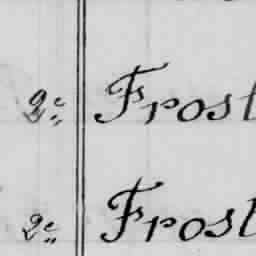 2e Frost
2e Frost